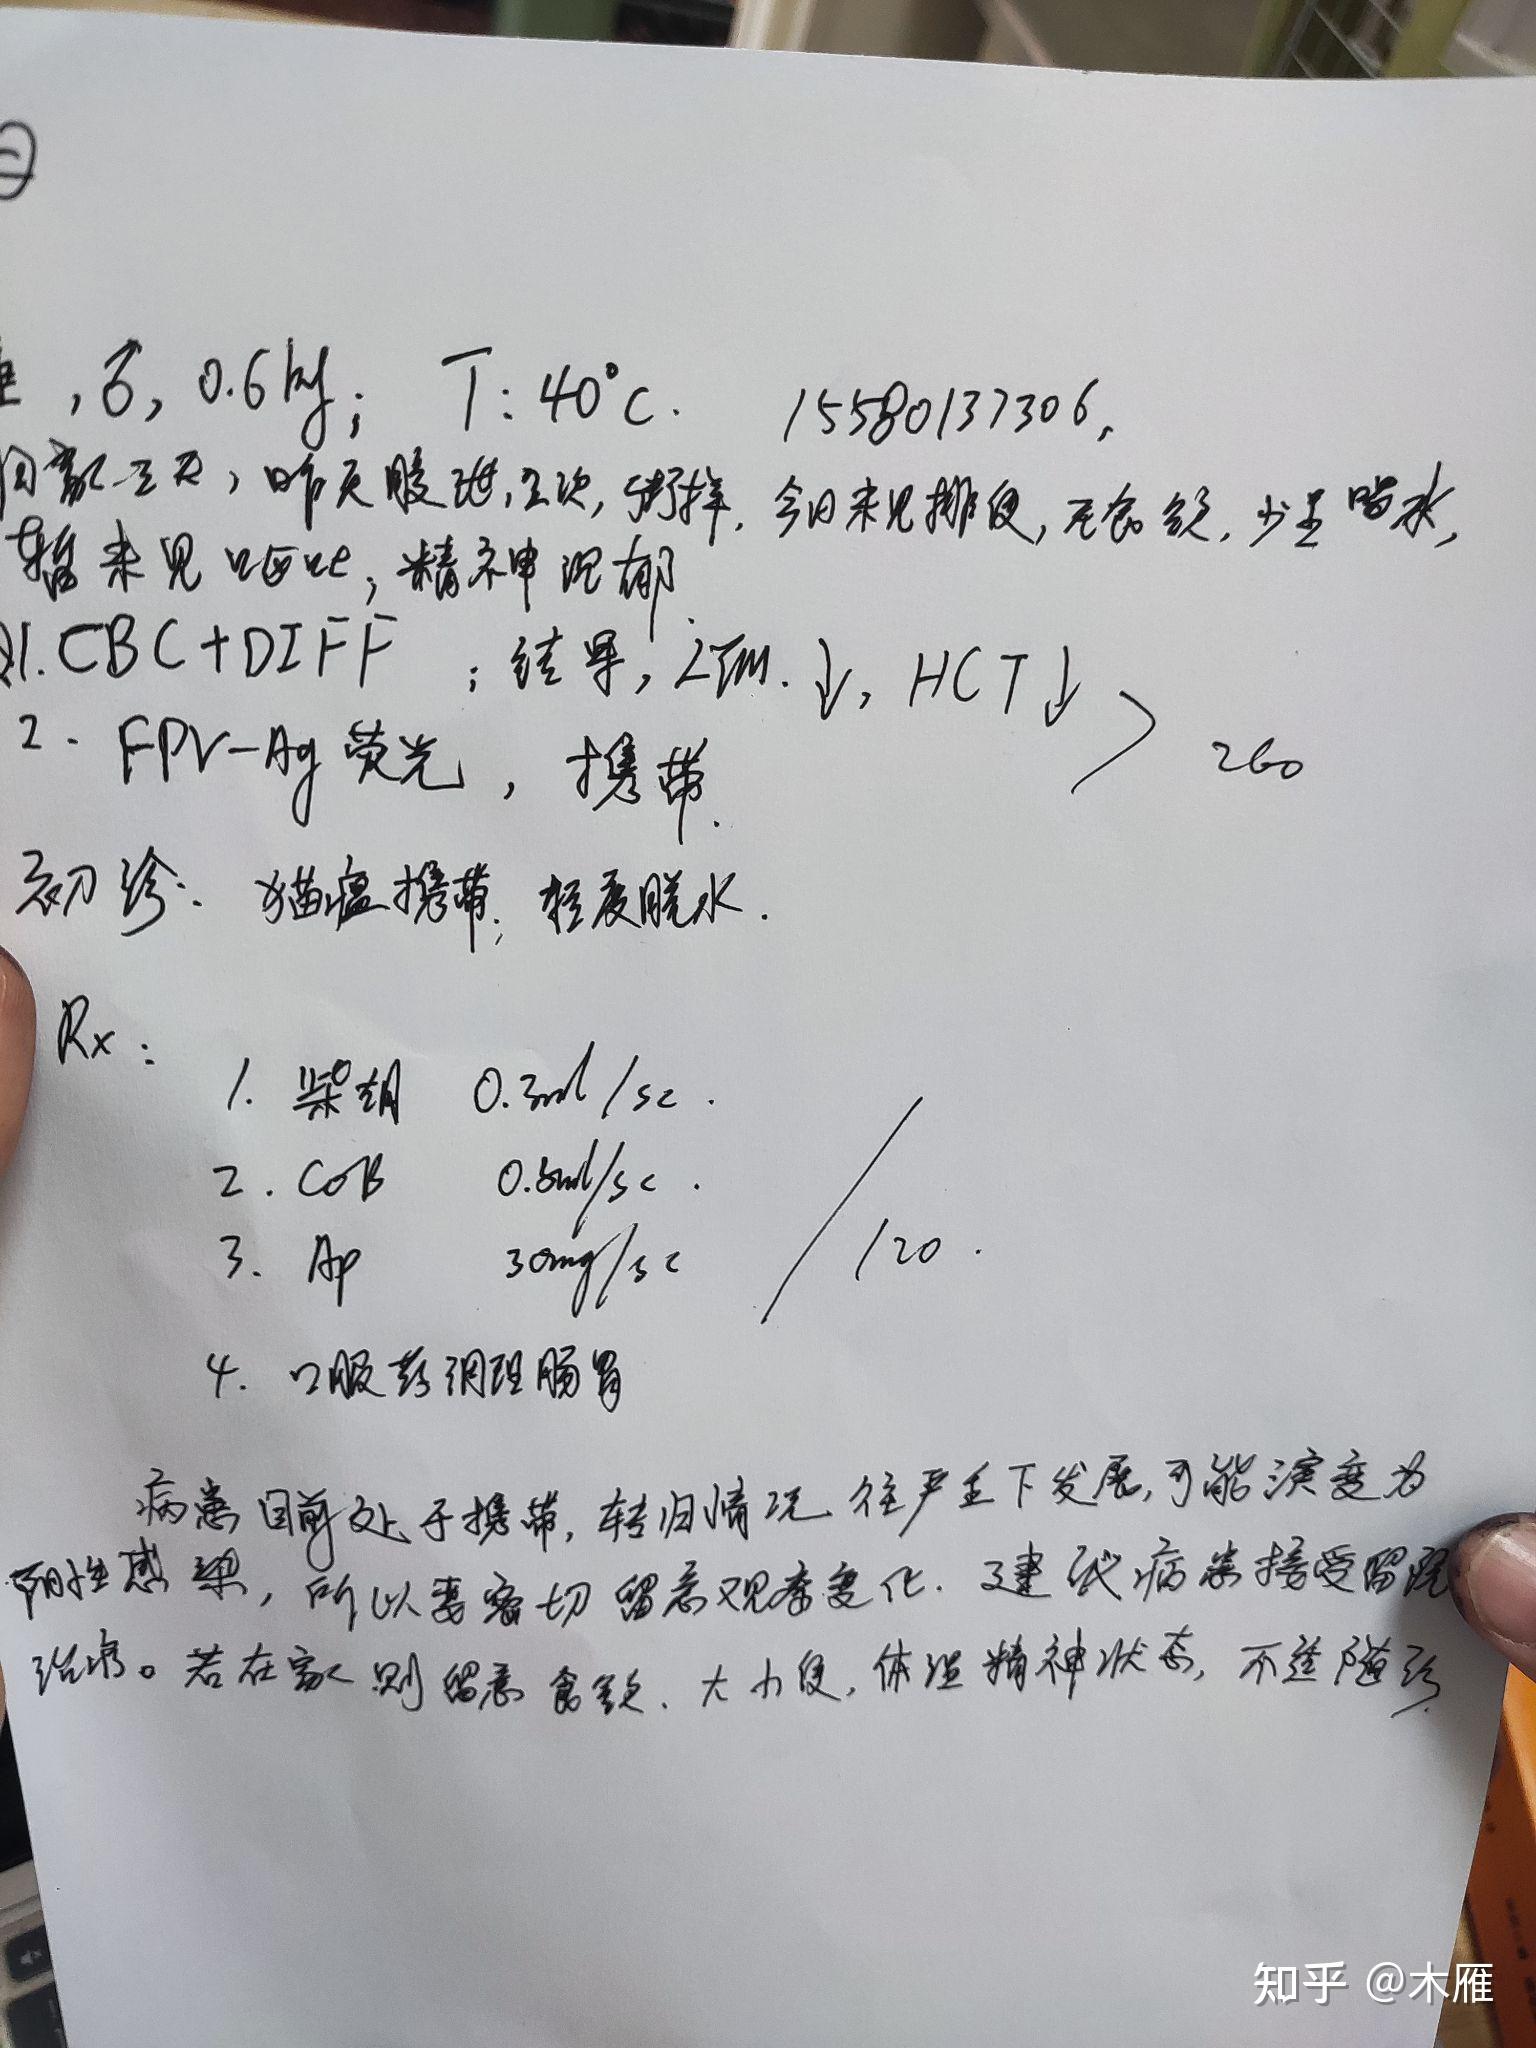 ㊀
, ♂, 0.6kg; T: 40°C. 15580137306,
回家三天, 昨天腹泄, 三次, 粥样, 今日未见排便, 无食欲, 少量喝水,
暂未见呕吐, 精神沉郁.
1. CBC+DIFF ; 结果, LYM. ↓, HCT↓
2. FPV-Ag 荧光, 携带. 260
初诊: 猫瘟携带, 轻度脱水.
Rx:
1. 柴胡 0.3ml/sc.
2. CoB 0.5ml/sc.
3. Ap 30mg/sc 120.
4. 口服药调理肠胃
病患目前处于携带, 转归情况往严重下发展, 可能演变为
阳性感染, 所以要密切留意观察变化. 建议病患接受留院
治疗。若在家则留意食欲、大小便, 体温精神状态, 不适随诊
知乎 @木雁